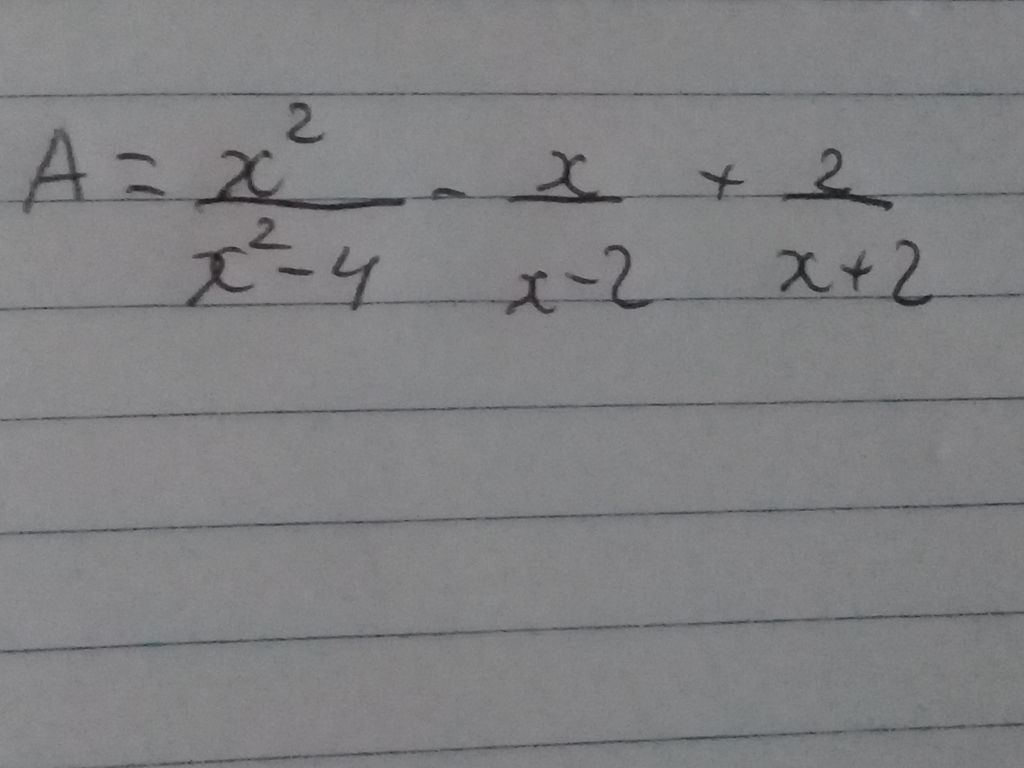 A = x²/(x²-4) - x/(x-2) + 2/(x+2)